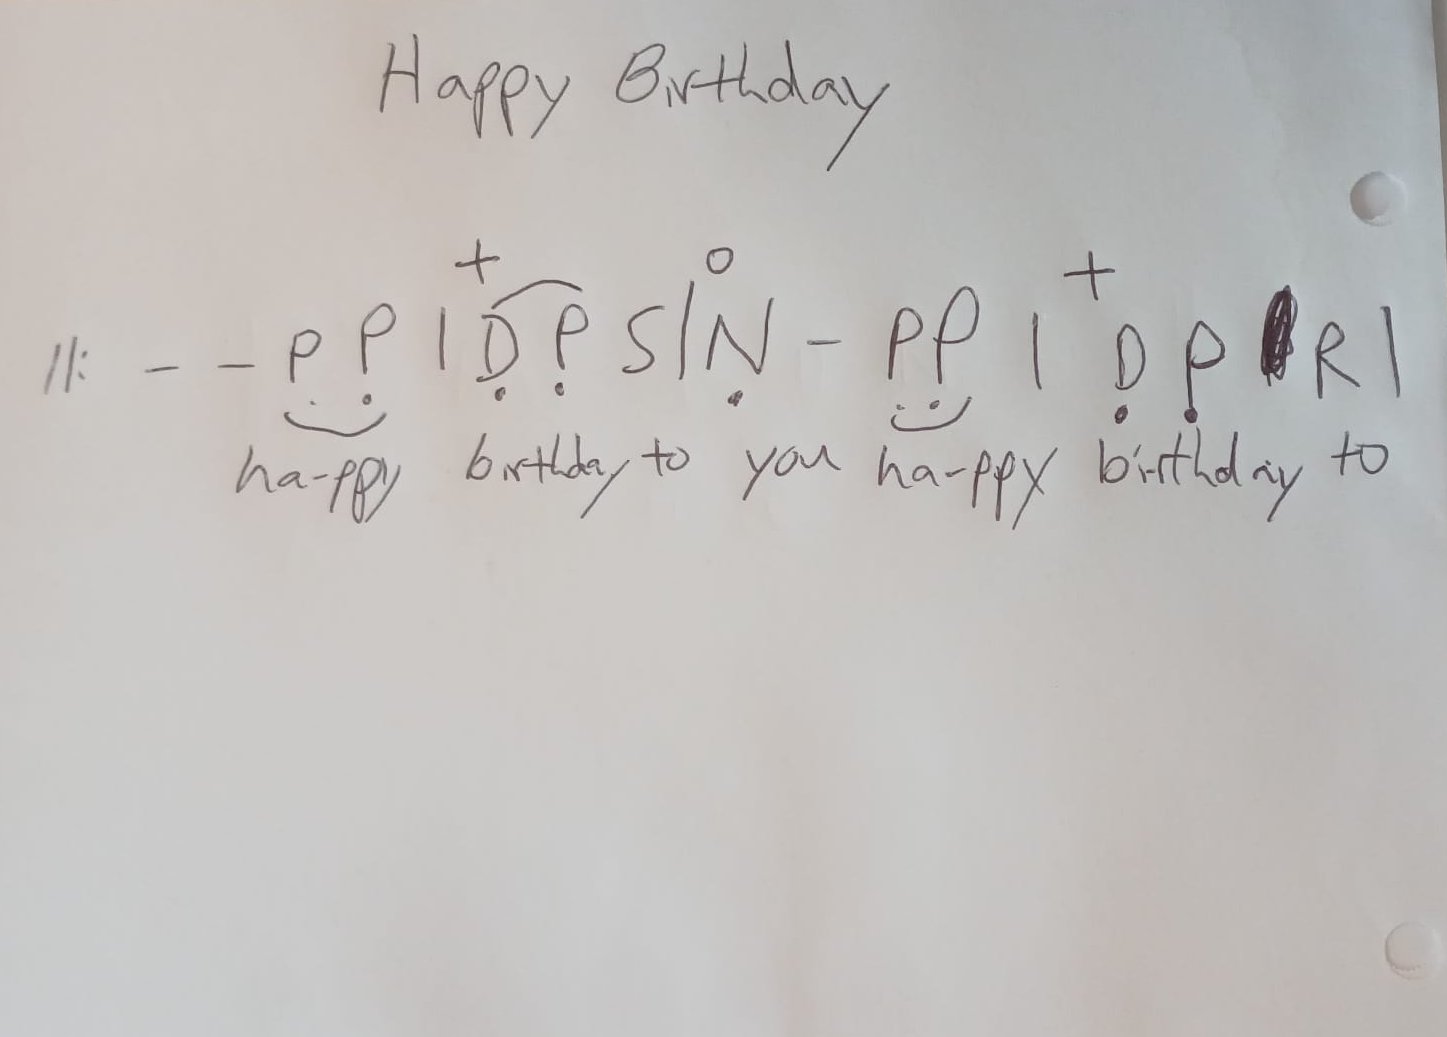 Happy Birthday
+ o +
||: - - P P | D P S | N - P P | D P R |
ha-ppy birthday to you ha-ppy birthday to